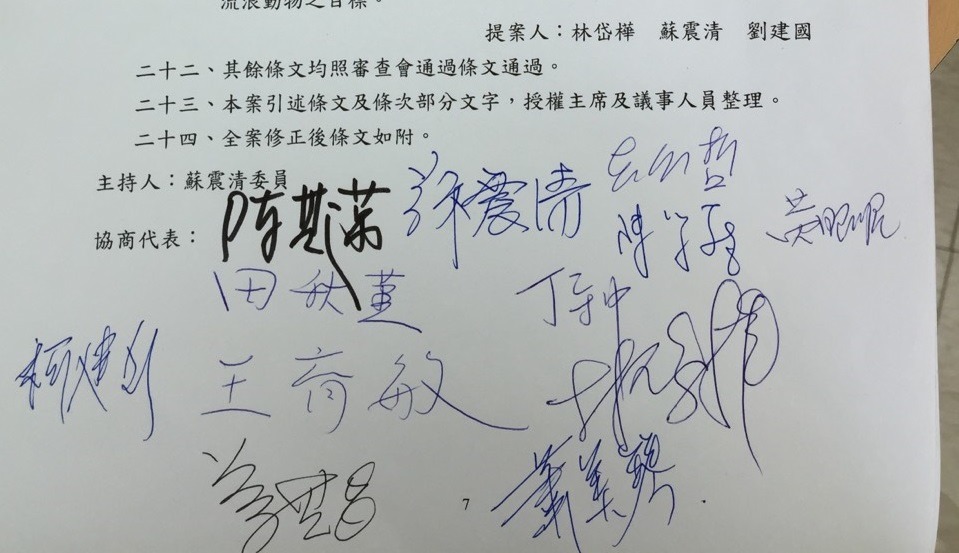 流浪動物之目標。
提案人：林岱樺　蘇震清　劉建國
二十二、其餘條文均照審查會通過條文通過。
二十三、本案引述條文及條次部分文字，授權主席及議事人員整理。
二十四、全案修正後條文如附。
主持人：蘇震清委員
協商代表：
陳其邁 蘇震清
黃昭順
田秋堇 丁守中
柯建銘 王育敏
7